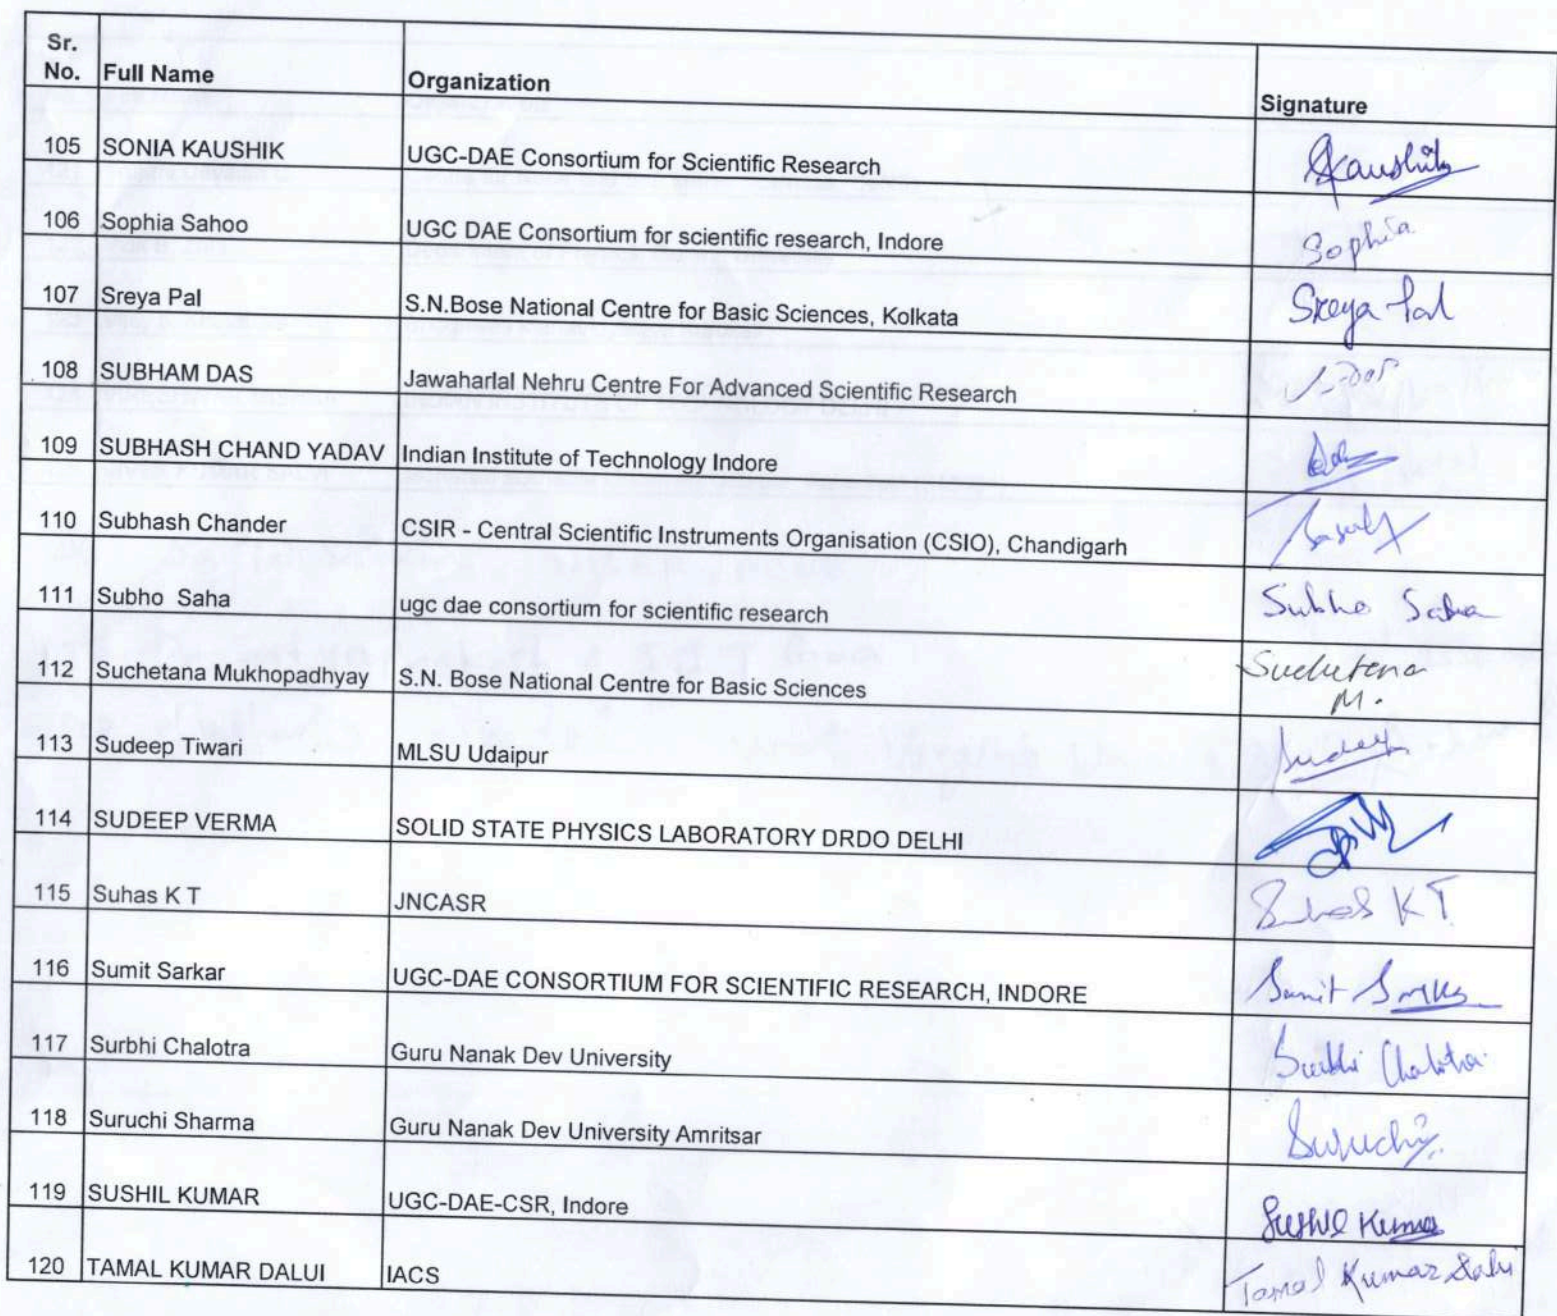 Sr.
No. Full Name Organization Signature
105 SONIA KAUSHIK UGC-DAE Consortium for Scientific Research SKaushik
106 Sophia Sahoo UGC DAE Consortium for scientific research, Indore Sophia
107 Sreya Pal S.N.Bose National Centre for Basic Sciences, Kolkata Sreya Pal
108 SUBHAM DAS Jawaharlal Nehru Centre For Advanced Scientific Research
109 SUBHASH CHAND YADAV Indian Institute of Technology Indore
110 Subhash Chander CSIR - Central Scientific Instruments Organisation (CSIO), Chandigarh
111 Subho Saha ugc dae consortium for scientific research Subho Saha
112 Suchetana Mukhopadhyay S.N. Bose National Centre for Basic Sciences Suchetana
M.
113 Sudeep Tiwari MLSU Udaipur Sudeep
114 SUDEEP VERMA SOLID STATE PHYSICS LABORATORY DRDO DELHI
115 Suhas K T JNCASR Suhas K T
116 Sumit Sarkar UGC-DAE CONSORTIUM FOR SCIENTIFIC RESEARCH, INDORE Sumit
117 Surbhi Chalotra Guru Nanak Dev University Surbhi Chalotra
118 Suruchi Sharma Guru Nanak Dev University Amritsar Suruchi
119 SUSHIL KUMAR UGC-DAE-CSR, Indore Sushil Kumar
120 TAMAL KUMAR DALUI IACS Tamal Kumar Dalui